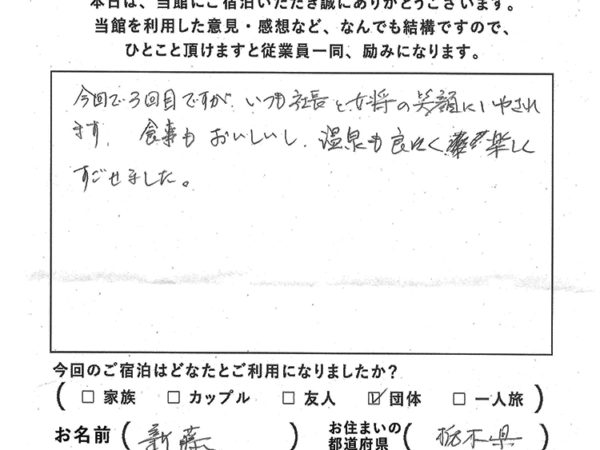 本日は、当館にご宿泊いただき誠にありがとうございます。
当館を利用した意見・感想など、なんでも結構ですので、
ひとこと頂けますと従業員一同、励みになります。
今回で3回目ですが、いつも社長と女将の笑顔にいやされ
ます。食事もおいしいし、温泉も良く 楽しく
すごせました。
今回のご宿泊はどなたとご利用になりましたか?
( □ 家族 □ カップル □ 友人 ☑ 団体 □ 一人旅 )
お名前 ( 新藤 ) お住まいの都道府県 ( 栃木県 )